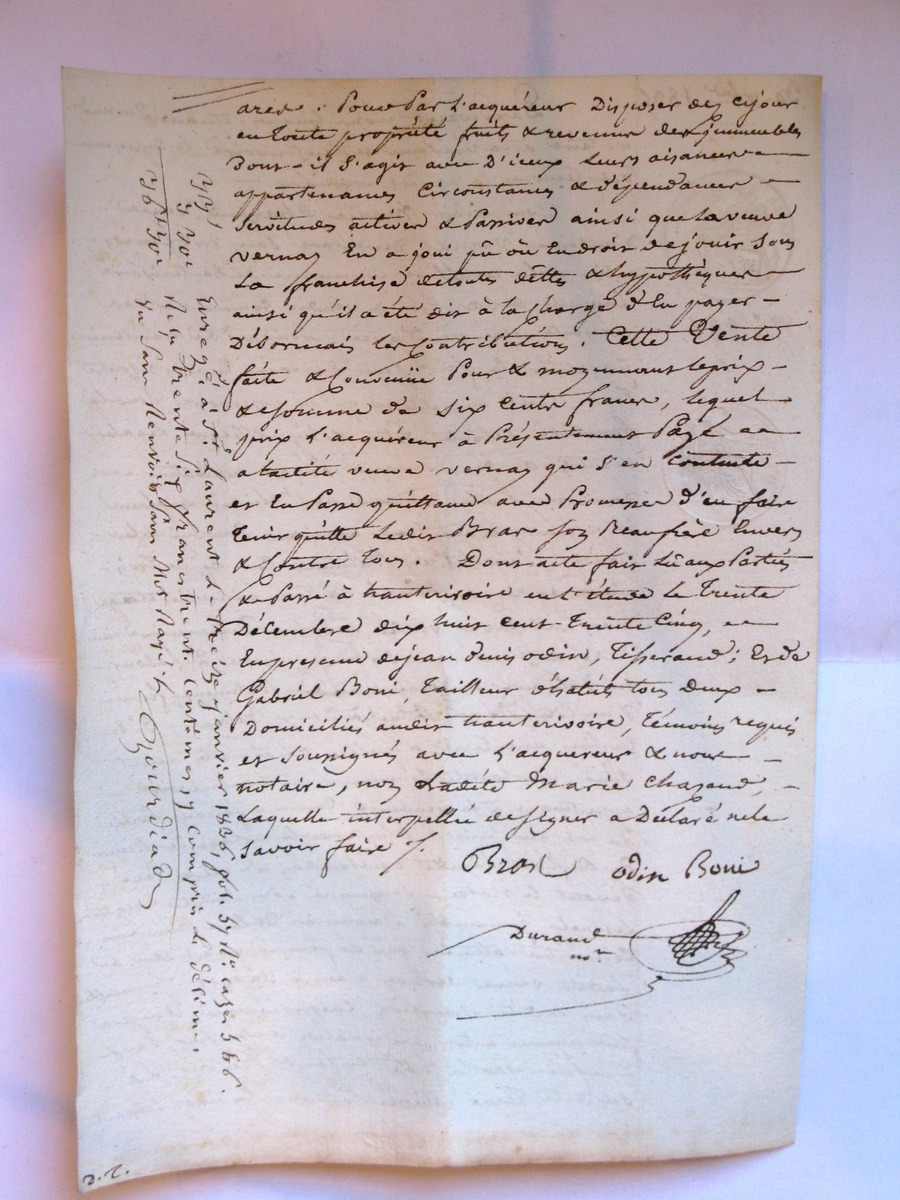 ares. Pour Par l'acquéreur Disposer dez cejour
en toute propriété fruits & revenus des jmmeubles
Dont-il S'agit avec D'iceux leurs aisances
appartenances Circonstances & dépendances
Servitudes actives & Passives ainsi que la veuve
vernay En a joui pû ou En droit de jouir Sous
La franchise de toutes dêttes & hypothèques
ainsi qu'il a été dit à la Charge d'En payer
Désormais les Contributions. Cette Vente
faite & Convenüe Pour & moyennant le prix
& Somme de Six Cents francs, lequel
prix l'acquéreur à Présentement Payé
a ladite veuve vernay qui S'en Contente
et En Passe quittance avec Promesse d'en faire
tenir quitte Ledit Bras Son Beaufrère Envers
& Contre tous. Dont acte fait Lû aux Parties
& Passé à hauterivoire en l'étude Le Trente
Décembre dix huit cent-Trente Cinq,
En presence de jean denis odin, Tisserand; Et de
Gabriel Boni, Tailleur d'habits tous deux
Domiciliés audit hauterivoire, Témoins requis
et Soussignés avec l'acquereur & nous
notaire, non Ladite Marie Chazaud,
Laquelle interpellée de Signer a Déclaré ne le
Savoir faire /.
Bras odin Boni
Durand
nore
Enregé à St Laurent Le treize Janvier 1836, fol. 57 No cazes 5 & 6.
Reçu trente Six francs trente Centimes y compris le décime.
Sans Renvoi Sans Mot Rayé
D.T.